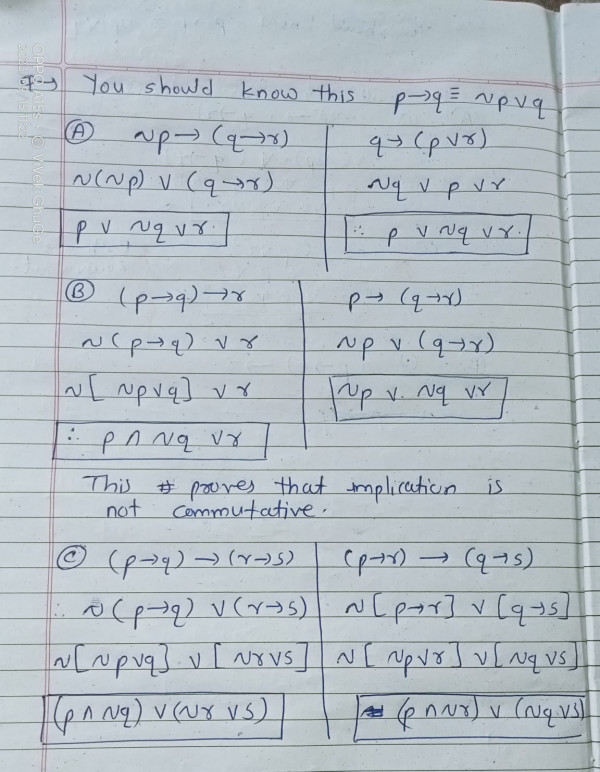 I→ You should know this: p→q ≡ ~p∨q
Ⓐ ~p → (q→r)
~(~p) ∨ (q→r)
p ∨ ~q ∨ r.
q → (p∨r)
~q ∨ p ∨ r
∴ p ∨ ~q ∨ r.
Ⓑ (p→q) → r
~(p→q) ∨ r
~[ ~p∨q] ∨ r
∴ p ∧ ~q ∨ r
p → (q→r)
~p ∨ (q→r)
~p ∨ ~q ∨ r
This proves that implication is
not commutative.
Ⓒ (p→q) → (r→s)
∴ ~(p→q) ∨ (r→s)
~[~p∨q] ∨ [~r∨s]
(p ∧ ~q) ∨ (~r ∨ s)
(p→r) → (q→s)
~[p→r] ∨ [q→s]
~[ ~p∨r] ∨ [~q∨s]
(p ∧ ~r) ∨ (~q ∨ s)